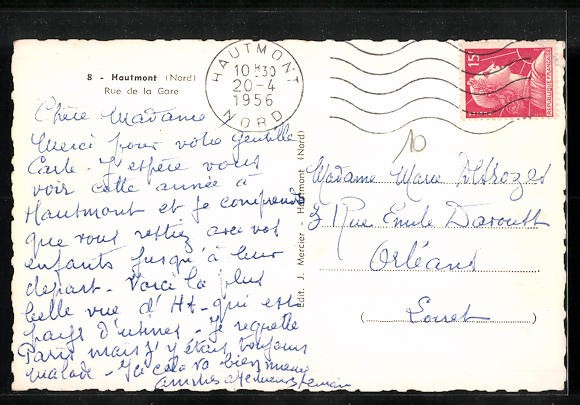 8 - Hautmont (Nord)
Rue de la Gare
HAUTMONT
10 H 30
20-4
1956
NORD
15F
REPUBLIQUE FRANÇAISE
10
Chère Madame
Merci pour votre gentille
Carte - J'espère vous
voir cette année à
Hautmont et je comprends
que vous restiez avec vos
enfants jusqu'à leur
depart - Voici la plus
belle vue d'Ht - qui est
pays d'usines - Je regrette
Paris mais j'y étais toujours
malade - Ici cela va bien mieux
Edit. J. Mercier - Hautmont (Nord)
Madame Marie
3 Rue Emile Davoust
Orléans
(Loiret)